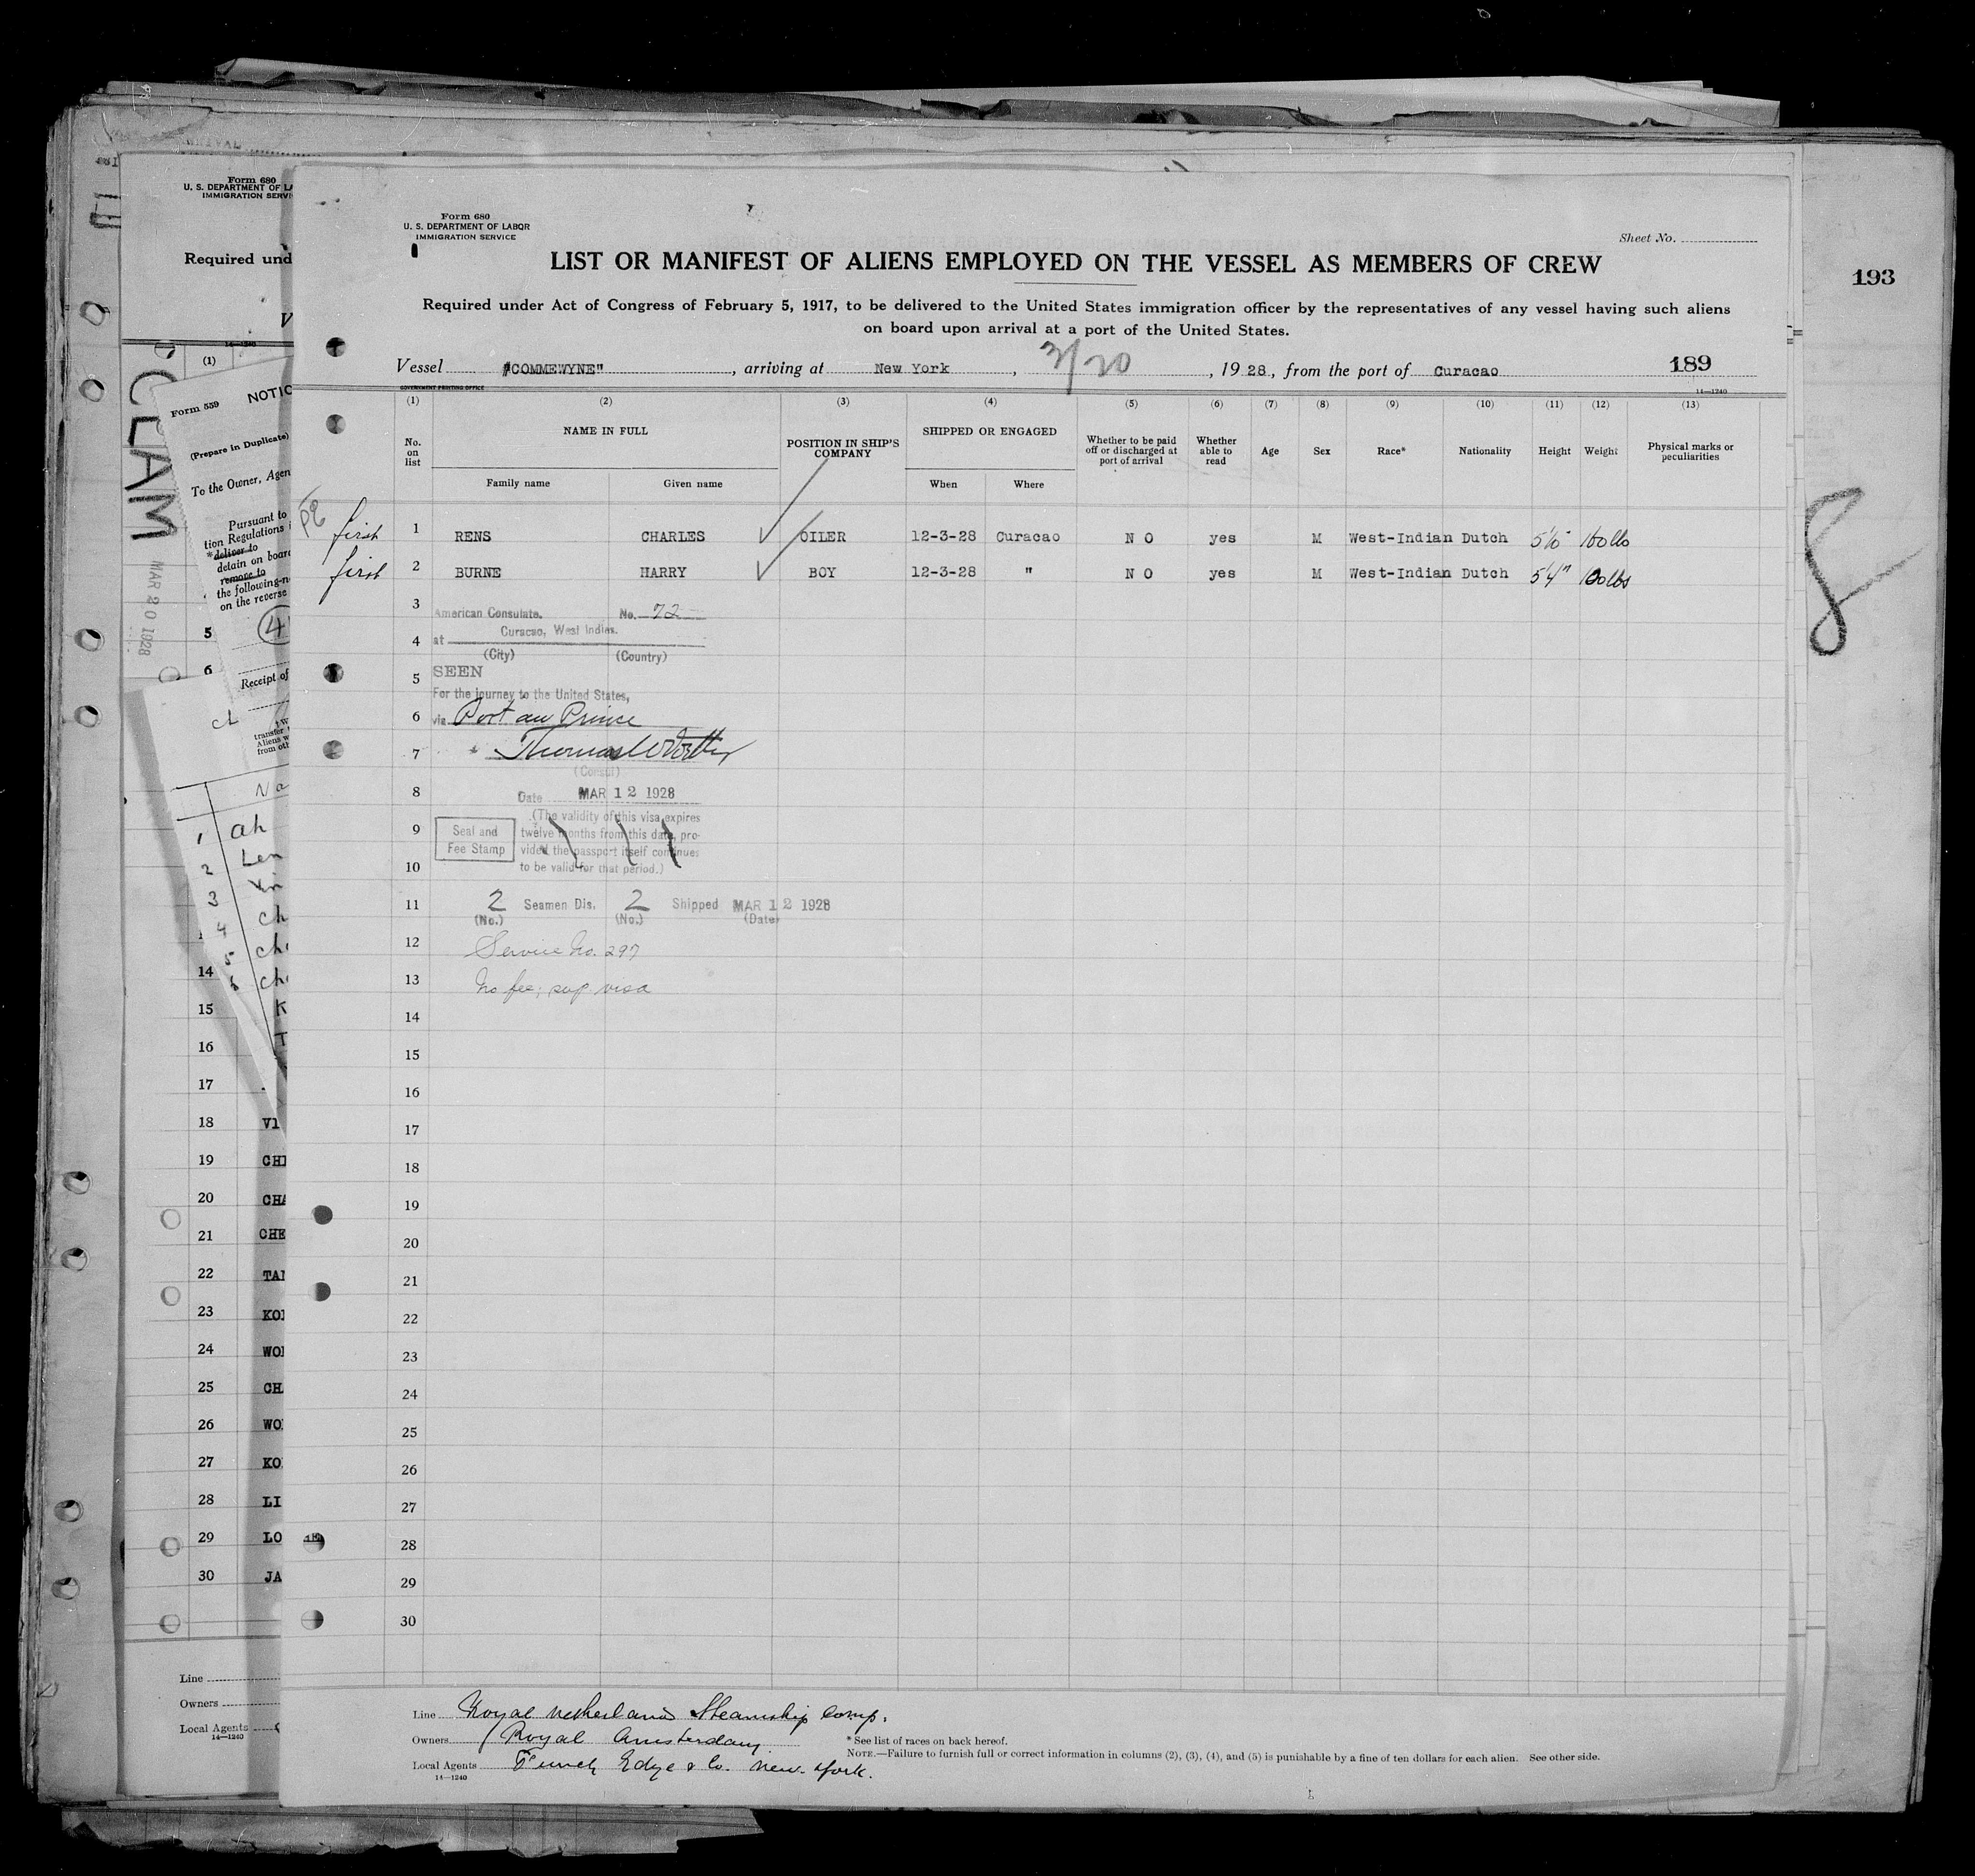 193
Form 680
U. S. DEPARTMENT OF LABOR
IMMIGRATION SERVICE
Sheet No.
LIST OR MANIFEST OF ALIENS EMPLOYED ON THE VESSEL AS MEMBERS OF CREW
Required under Act of Congress of February 5, 1917, to be delivered to the United States immigration officer by the representatives of any vessel having such aliens
on board upon arrival at a port of the United States.
Vessel "COMMEWYNE", arriving at New York, 3/20, 1928, from the port of Curacao 189
GOVERNMENT PRINTING OFFICE 14—1240
(1) (2) (3) (4) (5) (6) (7) (8) (9) (10) (11) (12) (13)
No. on list NAME IN FULL POSITION IN SHIP'S COMPANY SHIPPED OR ENGAGED Whether to be paid off or discharged at port of arrival Whether able to read Age Sex Race* Nationality Height Weight Physical marks or peculiarities
Family name Given name When Where
first 1 RENS CHARLES OILER 12-3-28 Curacao N O yes M West-Indian Dutch
first 2 BURNE HARRY BOY 12-3-28 " N O yes M West-Indian Dutch 5'4"
3 American Consulate. No. 72
4 at Curacao, West Indies.
(City) (Country)
5 SEEN
For the journey to the United States,
6 via Port au Prince
7
(Consul)
8 Date MAR 12 1928
(The validity of this visa expires
9 Seal and Fee Stamp twelve months from this date, pro-
vided the passport itself continues
10 to be valid for that period.)
11 2 Seamen Dis. 2 Shipped MAR 12 1928
(No.) (No.) (Date)
12 Service No. 297
13 No fee; sup visa
14
15
16
17
18
19
20
21
22
23
24
25
26
27
28
29
30
Line Royal Netherland Steamship Comp.
Owners Royal Amsterdam
* See list of races on back hereof.
NOTE.—Failure to furnish full or correct information in columns (2), (3), (4), and (5) is punishable by a fine of ten dollars for each alien. See other side.
Local Agents Funch Edye & Co. New-York.
14—1240
8
Form 680
U. S. DEPARTMENT OF
IMMIGRATION
Required
(1)
CLAM
MAR 20 1928
Form 559
(Prepare in Duplicate)
To the Owner,
Pursuant to
tion Regulations
*deliver to
detain on board
remove to
on the reverse
5
6
Receipt of
14
15
16
17
18
19
20
21
22
23
24
25
26
27
28
29
30
Line
Owners
Local Agents
14—1240